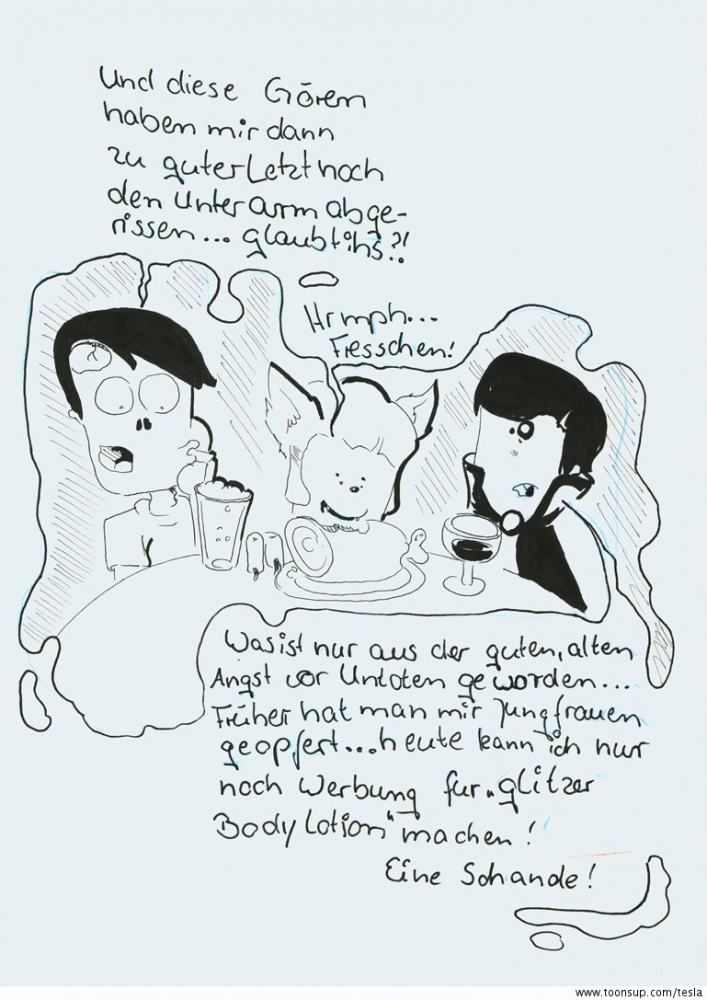 Und diese Gören
haben mir dann
zu guter Letzt noch
den Unterarm abge-
rissen... glaubt ihs?!
Hrmph...
Fresschen!
Was ist nur aus der guten, alten
Angst vor Untoten geworden...
Früher hat man mir Jungfrauen
geopfert...heute kann ich nur
noch Werbung für „glitzer
Body Lotion" machen!
Eine Schande!
www.toonsup.com/tesla